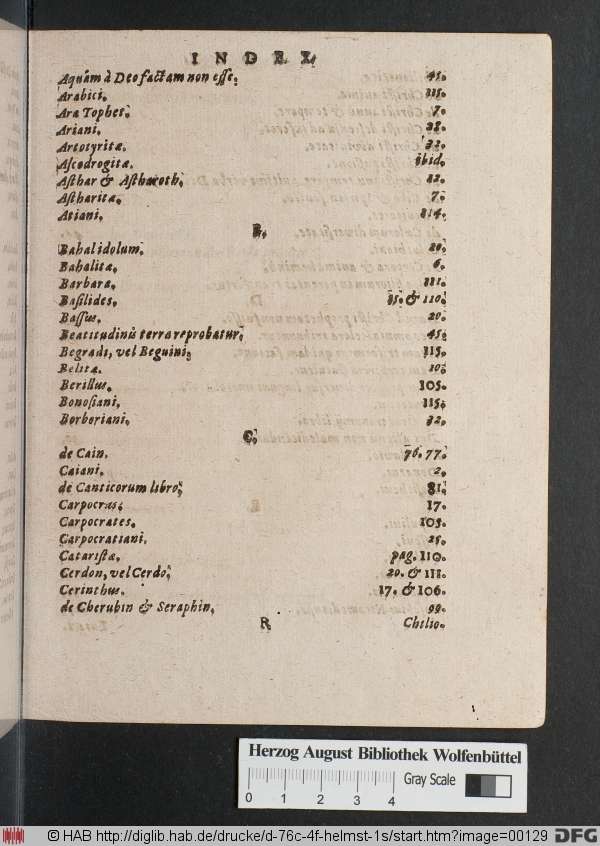 INDEX.
Aquam à Deo factam non esse. 45.
Arabici. 115.
Ara Tophet. 7.
Ariani. 38.
Artotyritæ. 32.
Ascodrogitæ. ibid.
Asthar & Astharoth. 82.
Astharitæ. 7.
Atiani. 814.
B.
Bahal idolum. 20.
Bahalitæ. 6.
Barbara. 111.
Basilides. 15. & 110.
Bassus. 20.
Beatitudinis terra reprobatur. 45.
Begradi, vel Beguini. 115.
Belitæ. 10.
Berillus. 105.
Bonosiani. 115.
Borboriani. 32.
C.
de Cain. 76. 77.
Caiani. 2.
de Canticorum libro. 81.
Carpocras. 17.
Carpocrates. 105.
Carpocratiani. 25.
Cataristæ. pag. 110.
Cerdon, vel Cerdo. 20. & 111.
Cerinthus. 17. & 106.
de Cherubin & Seraphin. 99.
R Chilio.
Herzog August Bibliothek Wolfenbüttel
Gray Scale
0 1 2 3 4
© HAB http://diglib.hab.de/drucke/d-76c-4f-helmst-1s/start.htm?image=00129 DFG